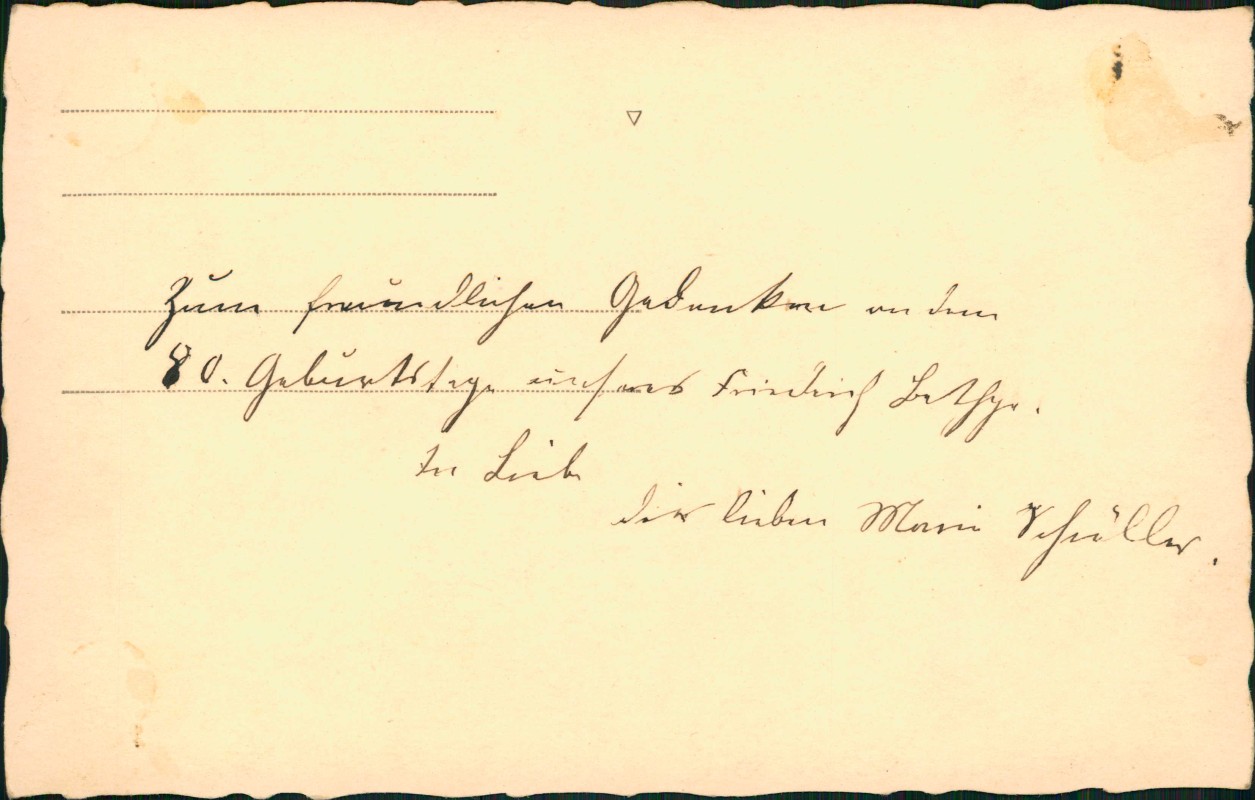 Zum freundlichen Gedenken an dem
80. Geburtstage unseres Friedrich
In Liebe
lieben Marie Schüller.